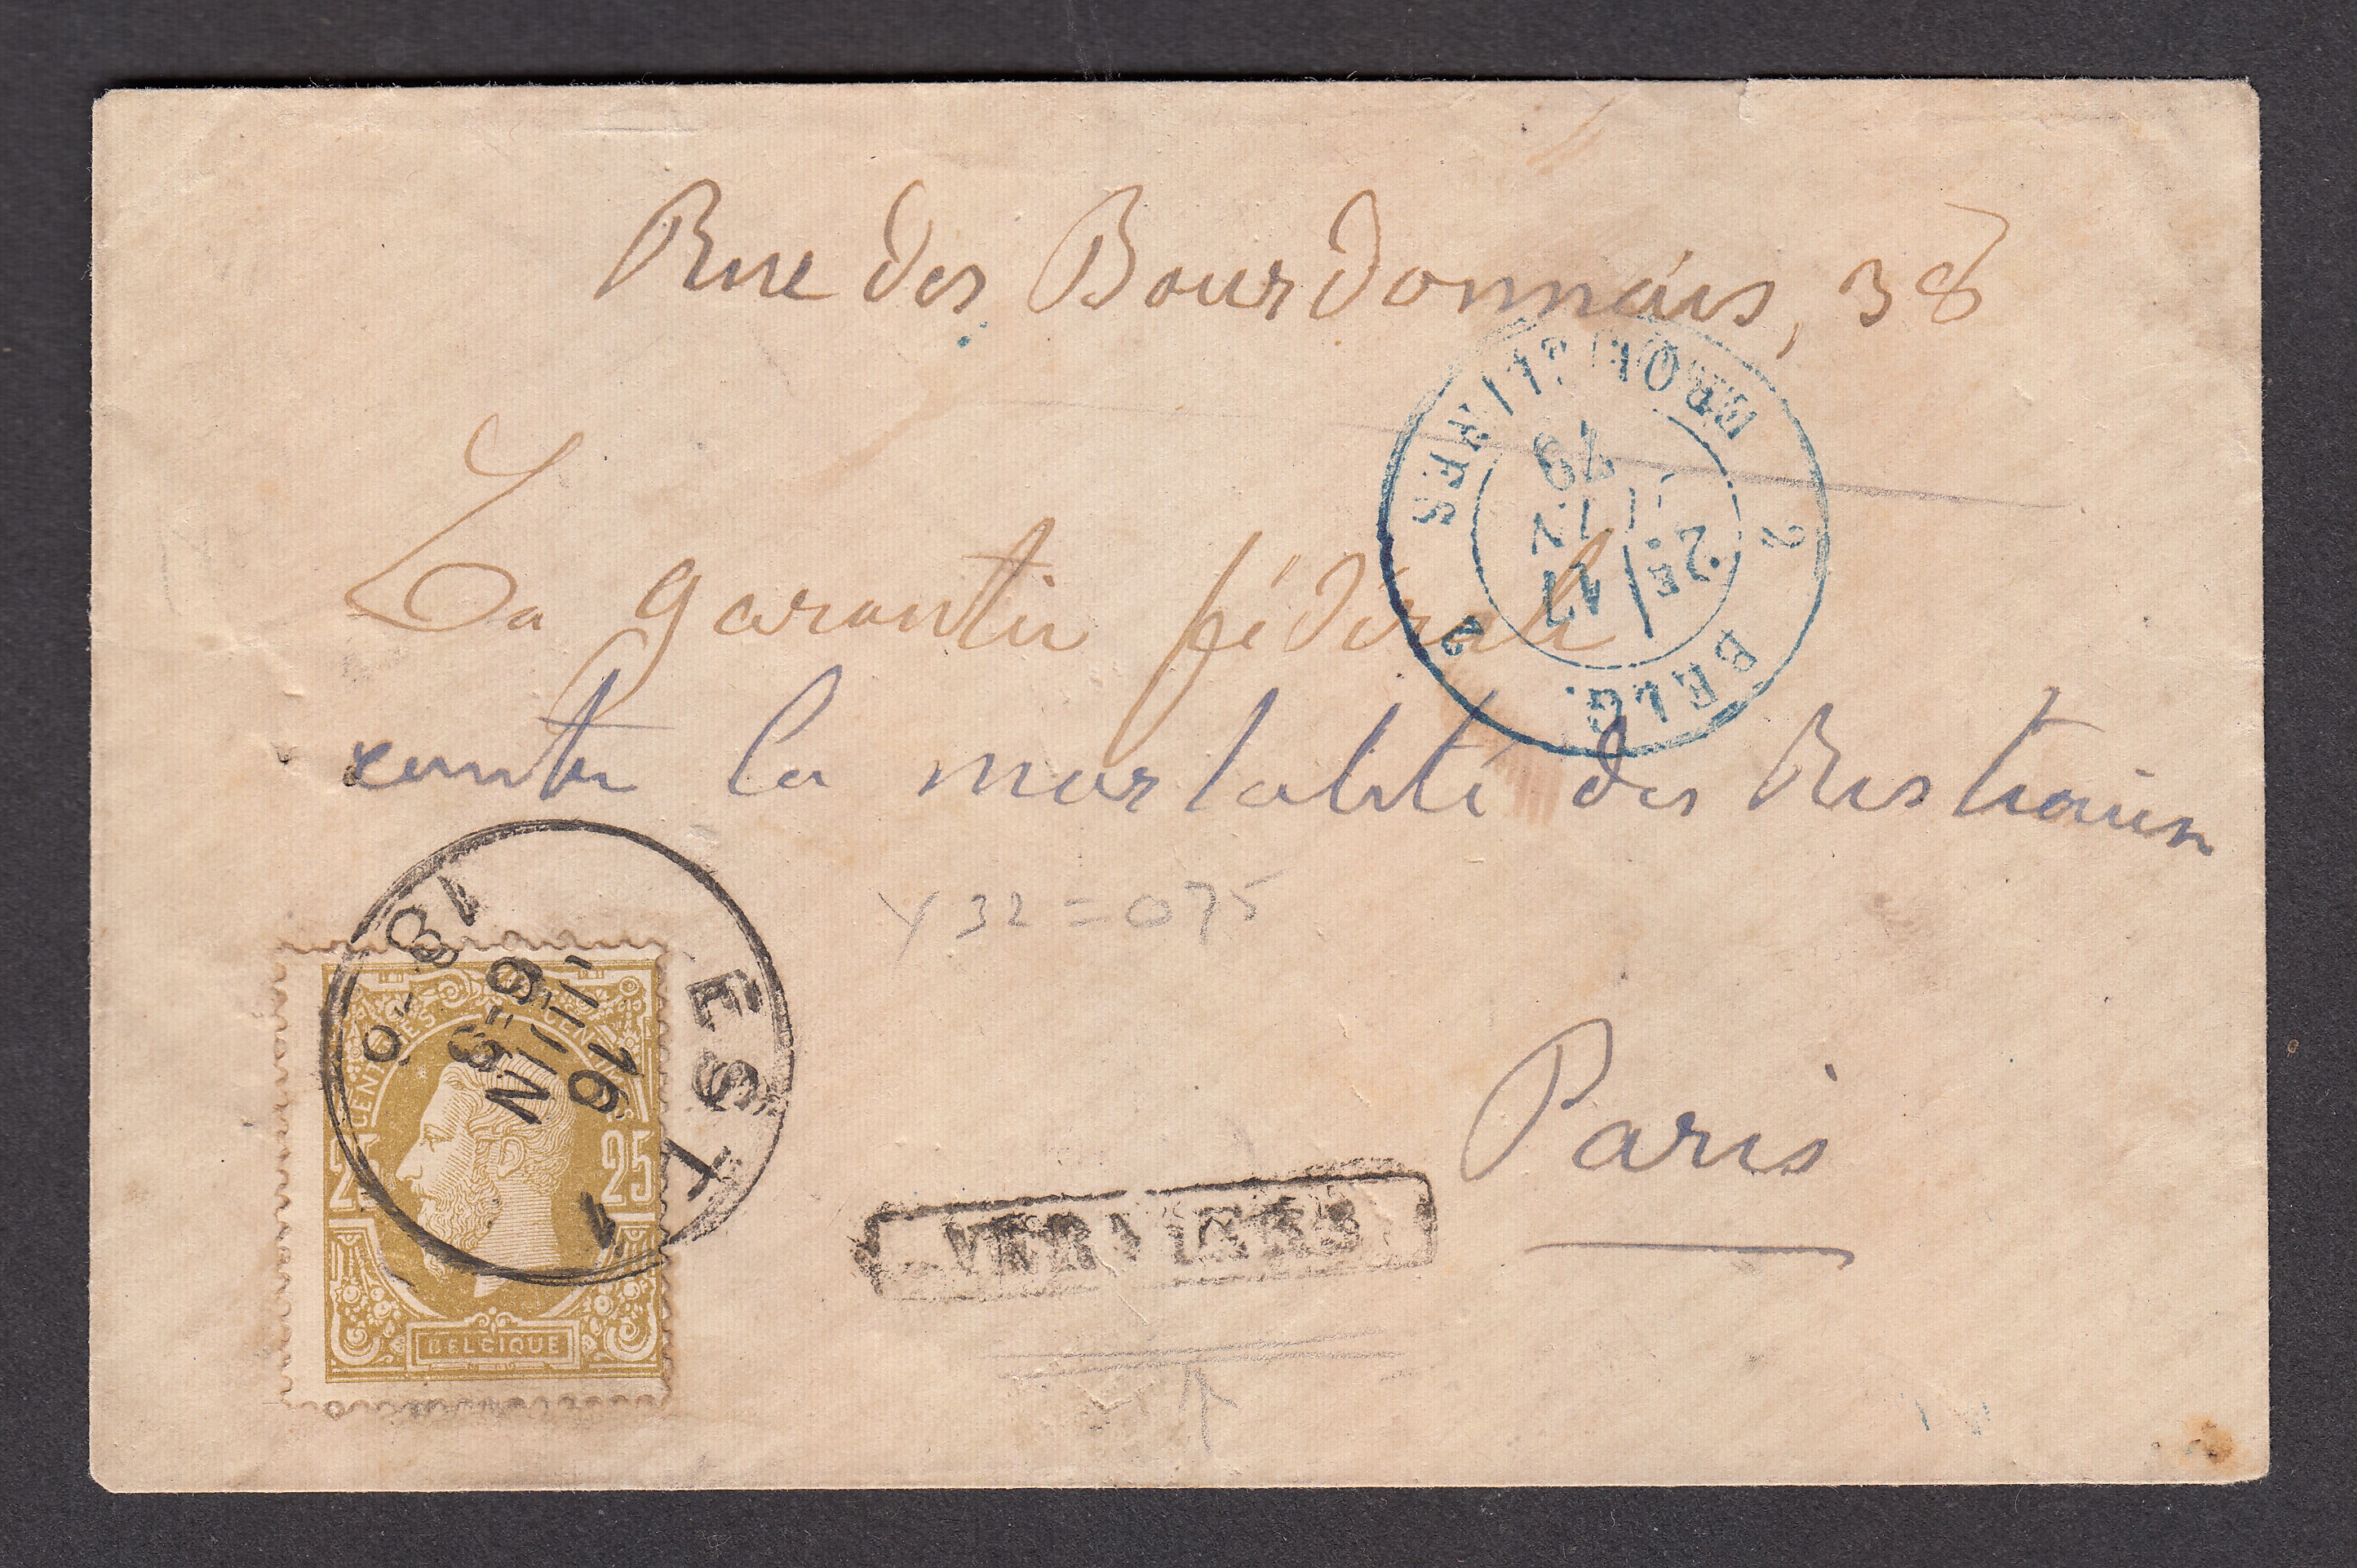 Rue des Bourdonnais, 38
La garantie fédérale
contre la mortalité des Bestiaux
Y 32 = 075
Paris
VERVIERS
EST 1
16
N
8-9
1879
CENTIMES CENTIMES
25 25
BELGIQUE
2 BELG. 2
ERQUELINES
2E
17
79